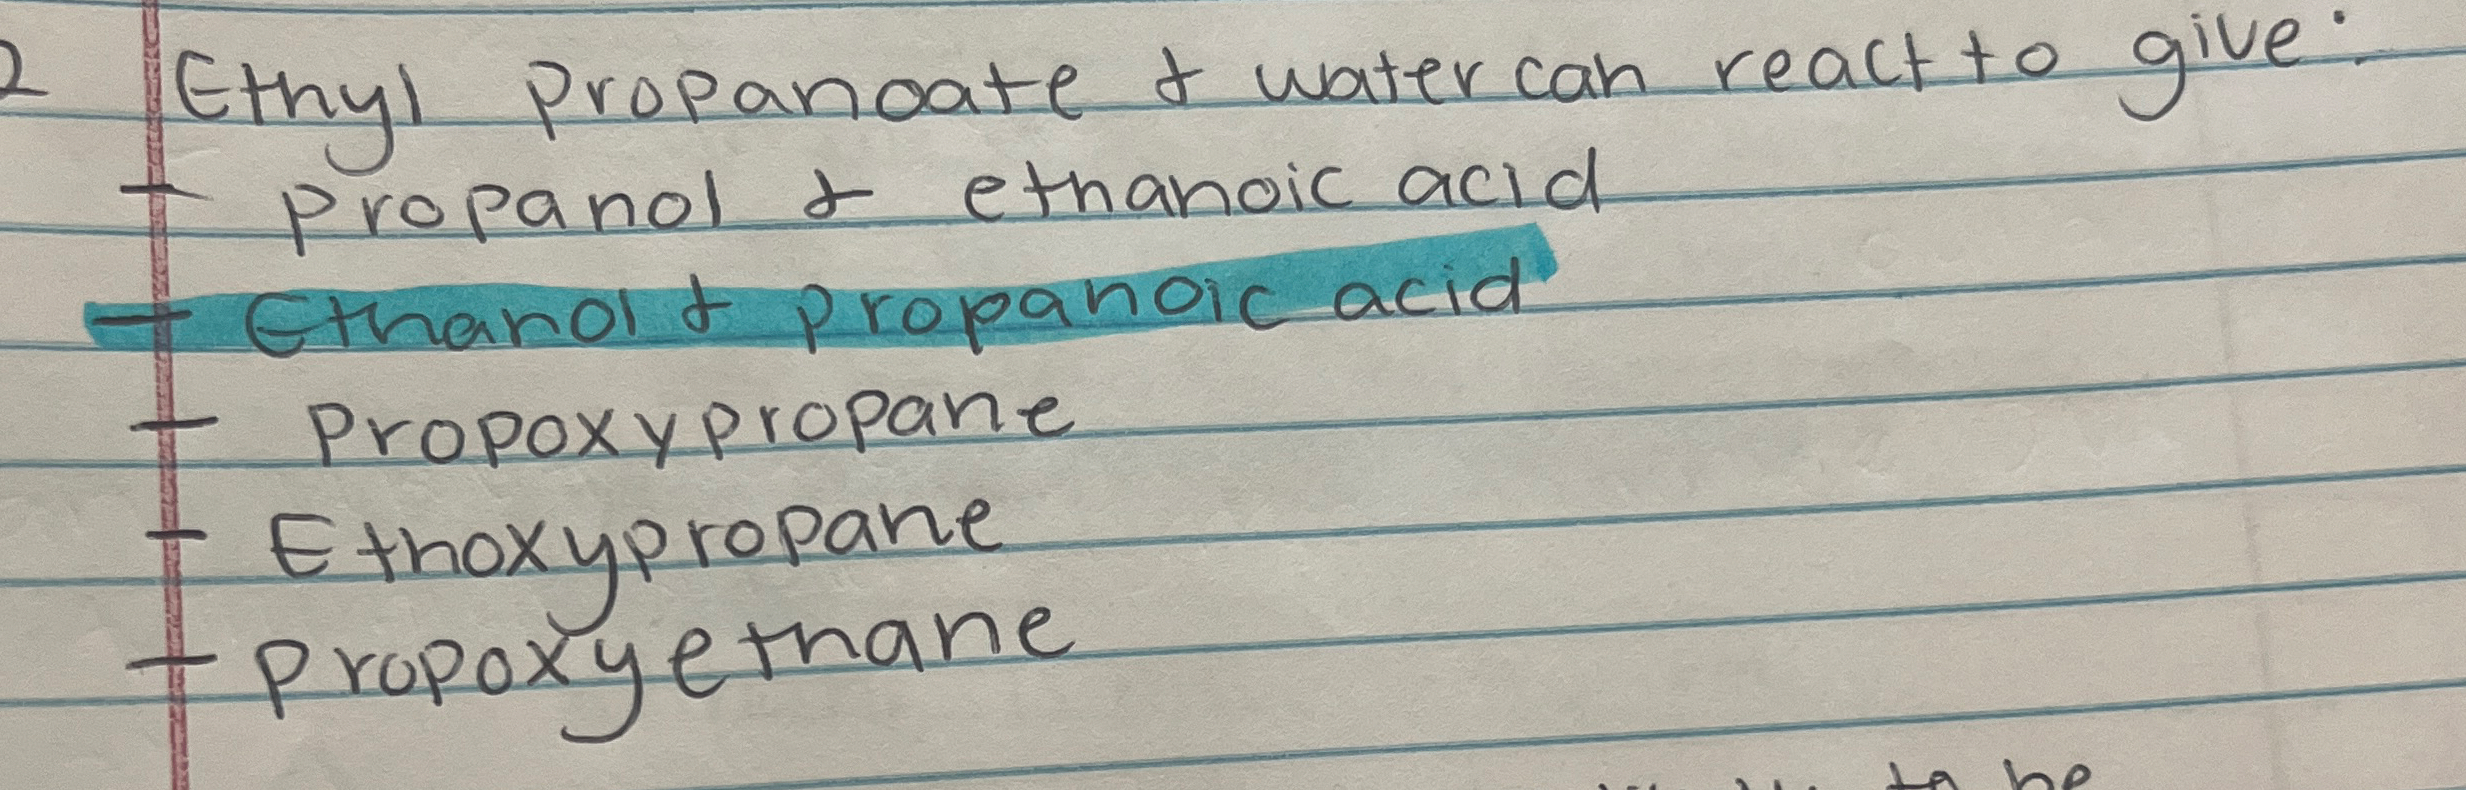 2 Ethyl propanoate & water can react to give:
- propanol & ethanoic acid
- Ethanol & propanoic acid
- Propoxypropane
- Ethoxypropane
- propoxyethane
to be